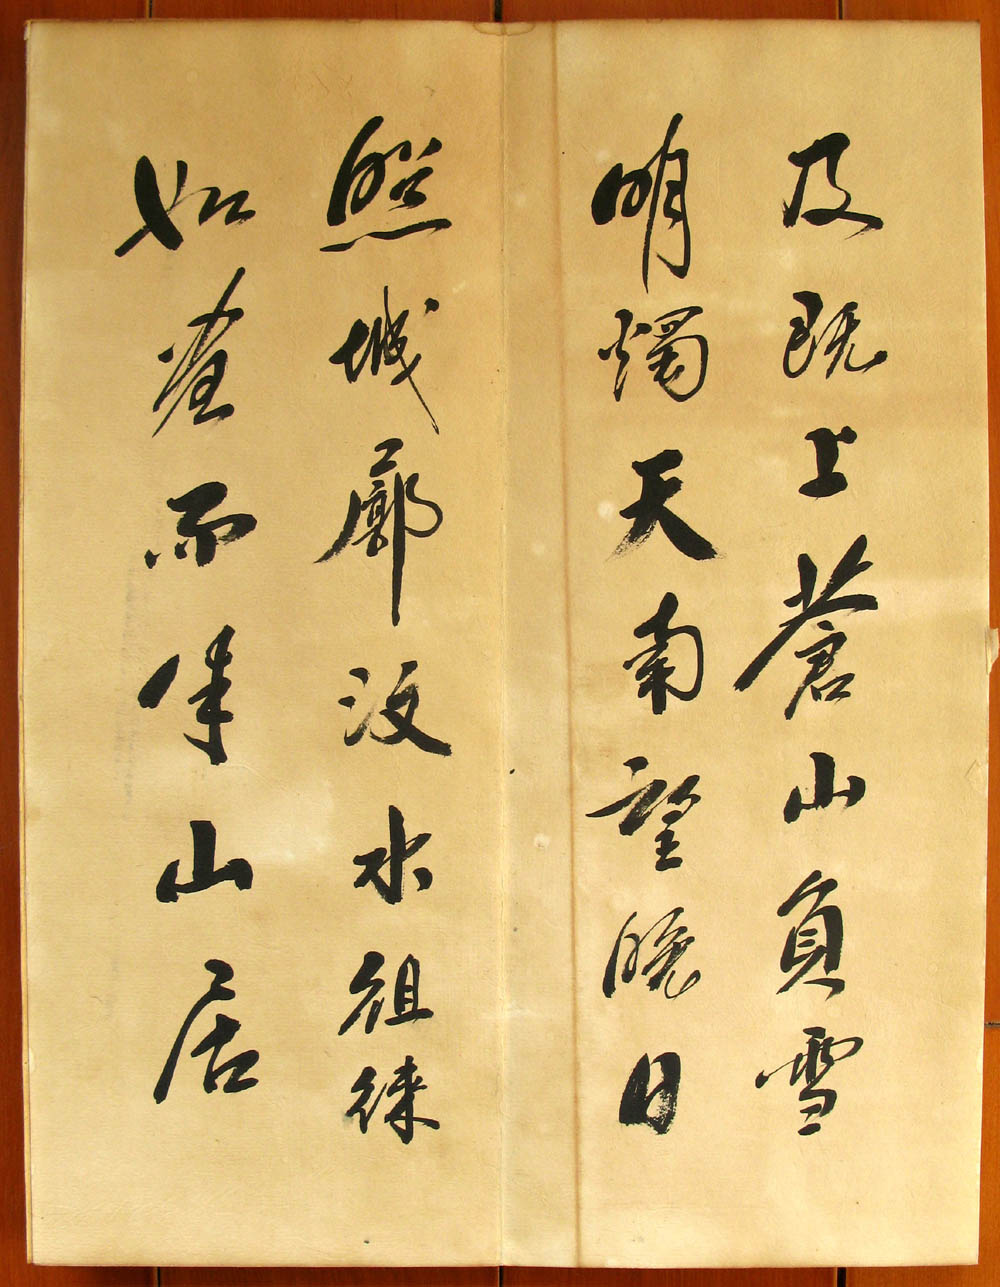 及既上蒼山負雪
明燭天南望晚日
照城廓汶水徂徠
如畫而半山居